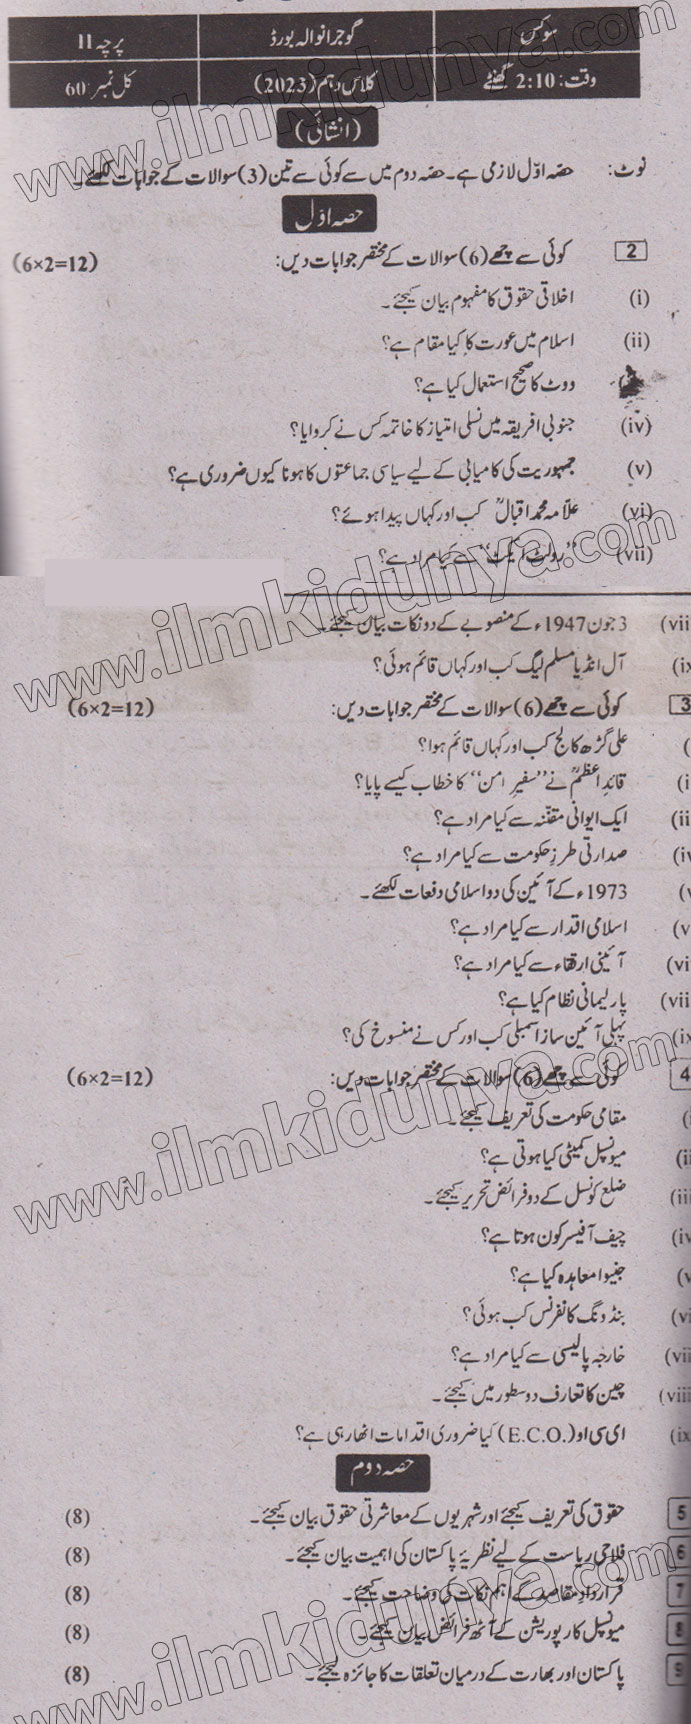 سوکس گوجرانوالہ بورڈ پرچہ II
وقت: 2:10 گھنٹے کلاس دہم (2023) کل نمبر: 60
(انشائی)
نوٹ: حصہ اوّل لازمی ہے۔ حصہ دوم میں سے کوئی سے تین (3) سوالات کے جوابات لکھئے۔
حصہ اوّل
2 کوئی سے چھے (6) سوالات کے مختصر جوابات دیں: (6×2=12)
(i) اخلاقی حقوق کا مفہوم بیان کیجئے۔
(ii) اسلام میں عورت کا کیا مقام ہے؟
ووٹ کا صحیح استعمال کیا ہے؟
(iv) جنوبی افریقہ میں نسلی امتیاز کا خاتمہ کس نے کروایا؟
(v) جمہوریت کی کامیابی کے لیے سیاسی جماعتوں کا ہونا کیوں ضروری ہے؟
(vi) علّامہ محمد اقبالؒ کب اور کہاں پیدا ہوئے؟
(vii) ’’رولٹ ایکٹ‘‘ سے کیا مراد ہے؟
(vii 3 جون 1947ء کے منصوبے کے دو نکات بیان کیجئے۔
(ix آل انڈیا مسلم لیگ کب اور کہاں قائم ہوئی؟
3 کوئی سے چھے (6) سوالات کے مختصر جوابات دیں: (6×2=12)
( علی گڑھ کالج کب اور کہاں قائم ہوا؟
(i قائدِاعظمؒ نے ’’سفیرِ امن‘‘ کا خطاب کیسے پایا؟
(ii ایک ایوانی مقنّنہ سے کیا مراد ہے؟
(iv صدارتی طرزِ حکومت سے کیا مراد ہے؟
(v 1973ء کے آئین کی دو اسلامی دفعات لکھئے۔
(v اسلامی اقدار سے کیا مراد ہے؟
(vi آئینی ارتقاء سے کیا مراد ہے؟
(vii پارلیمانی نظام کیا ہے؟
(ix پہلی آئین ساز اسمبلی کب اور کس نے منسوخ کی؟
4 کوئی سے چھے (6) سوالات کے مختصر جوابات دیں: (6×2=12)
(i مقامی حکومت کی تعریف کیجئے۔
(ii میونسپل کمیٹی کیا ہوتی ہے؟
(iii ضلع کونسل کے دو فرائض تحریر کیجئے۔
(iv چیف آفیسر کون ہوتا ہے؟
(v جنیوا معاہدہ کیا ہے؟
(vi بنڈونگ کانفرنس کب ہوئی؟
(vii خارجہ پالیسی سے کیا مراد ہے؟
(viii چین کا تعارف دو سطور میں کیجئے۔
(ix ای سی او (E.C.O.) کیا ضروری اقدامات اٹھا رہی ہے؟
حصہ دوم
5 حقوق کی تعریف کیجئے اور شہریوں کے معاشرتی حقوق بیان کیجئے۔ (8)
6 فلاحی ریاست کے لیے نظریۂ پاکستان کی اہمیت بیان کیجئے۔ (8)
7 قراردادِ مقاصد کے اہم نکات کی وضاحت کیجئے۔ (8)
8 میونسپل کارپوریشن کے آٹھ فرائض بیان کیجئے۔ (8)
9 پاکستان اور بھارت کے درمیان تعلقات کا جائزہ لیجئے۔ (8)
www.ilmkidunya.com
www.ilmkidunya.com
www.ilmkidunya.com
www.ilmkidunya.com